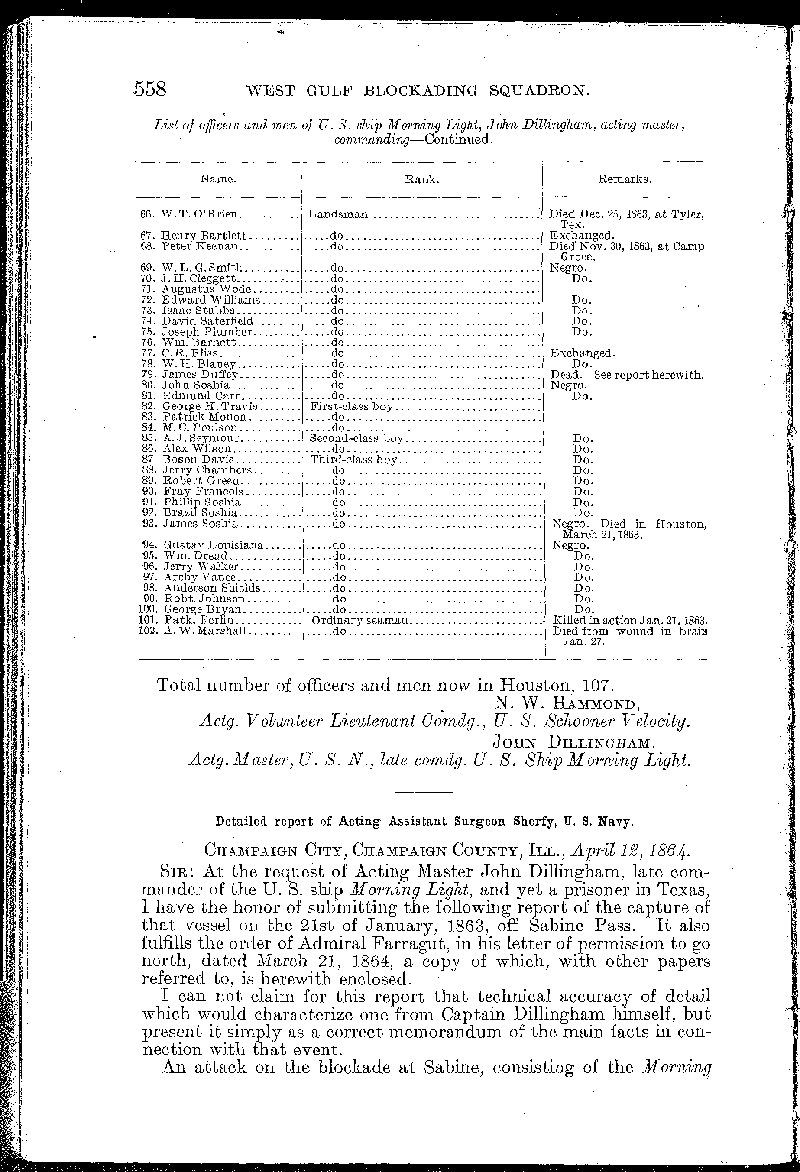 558 WEST GULF BLOCKADING SQUADRON.
List of officers and men of U. S. ship Morning Light, John Dillingham, acting master,
commanding—Continued.
Name. Rank. Remarks.
66. W. T. O'Brien Landsman Died Dec. 25, 1863, at Tyler,
Tex.
67. Henry Bartlett do Exchanged.
68. Peter Keenan do Died Nov. 30, 1863, at Camp
Groce.
69. W. L. G. Smith do Negro.
70. J. H. Cleggett do Do.
71. Augustus Wode do
72. Edward Williams do Do.
73. Isaac Stubbs do Do.
74. David Saterfield do Do.
75. Joseph Plumber do Do.
76. Wm. Barnett do
77. C. R. Elias do Exchanged.
78. W. H. Blaney do Do.
79. James Duffey do Dead. See report herewith.
80. John Soshia do Negro.
81. Edmund Carr do Do.
82. George H. Travis First-class boy
83. Patrick Motion do
84. M. C. Poulson do
85. A. J. Seymour Second-class boy Do.
86. Alex Wilson do Do.
87. Boson Davis Third-class boy Do.
88. Jerry Chambers do Do.
89. Robert Green do Do.
90. Fray Francois do Do.
91. Phillip Soshia do Do.
92. Brazil Soshia do Do.
93. James Soshia do Negro. Died in Houston,
March 21, 1863.
94. Gustav Louisiana do Negro.
95. Wm. Dread do Do.
96. Jerry Walker do Do.
97. Archy Vance do Do.
98. Anderson Shields do Do.
99. Robt. Johnson do Do.
100. George Bryan do Do.
101. Patk. Borlin Ordinary seaman Killed in action Jan. 21, 1863.
102. A. W. Marshall do Died from wound in brain
Jan. 27.
Total number of officers and men now in Houston, 107.
N. W. HAMMOND,
Actg. Volunteer Lieutenant Comdg., U. S. Schooner Velocity.
JOHN DILLINGHAM,
Actg. Master, U. S. N., late comdg. U. S. Ship Morning Light.
Detailed report of Acting Assistant Surgeon Sherfy, U. S. Navy.
CHAMPAIGN CITY, CHAMPAIGN COUNTY, ILL., April 12, 1864.
SIR: At the request of Acting Master John Dillingham, late com-
mander of the U. S. ship Morning Light, and yet a prisoner in Texas,
I have the honor of submitting the following report of the capture of
that vessel on the 21st of January, 1863, off Sabine Pass. It also
fulfills the order of Admiral Farragut, in his letter of permission to go
north, dated March 21, 1864, a copy of which, with other papers
referred to, is herewith enclosed.
I can not claim for this report that technical accuracy of detail
which would characterize one from Captain Dillingham himself, but
present it simply as a correct memorandum of the main facts in con-
nection with that event.
An attack on the blockade at Sabine, consisting of the Morning